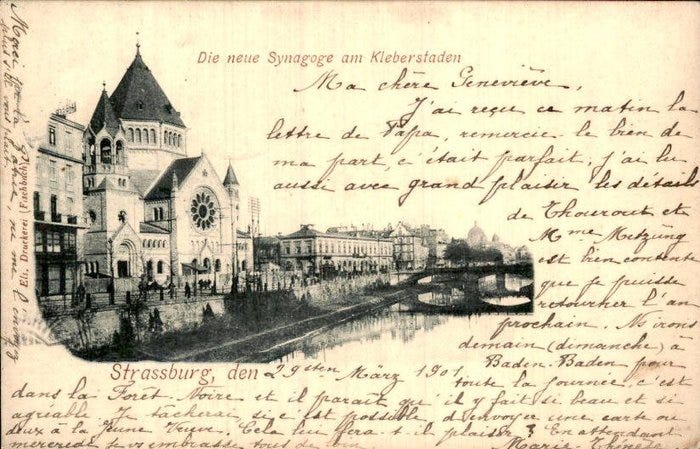 Die neue Synagoge am Kleberstaden
Ma chère Geneviève,
J'ai reçu ce matin la
lettre de Papa, remercie-le bien de
ma part, c'était parfait, j'ai lu
aussi avec grand plaisir les détails
de Thourout et
Mme Metzüng
est bien contente
que je puisse
retourner l'an
prochain. Ns irons
demain (dimanche) à
Strassburg, den 29ten März 1901
Baden-Baden pour
toute la journée, c'est
dans la Forêt-Noire et il paraît qu'il y fait si beau et si
agréable. Je tacherai si c'est possible, d'envoyer une carte ou
deux à la Jeune Veuve. Cela lui fera-t-il plaisir? En attendant
mercredi je vs embrasse tous de loin
Marie-Thérèse
Els. Druckerei (Fachbücher)